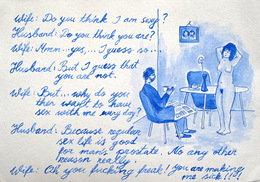 Wife: Do you think I am sexy?
Husband: Do you think you are?
Wife: Mmn...yes,... I guess so...
Husband: But I guess that
you are not.
Wife: But... why do you
then want to have
sex with me every day?
Husband: Because regular
sex life is good
for man's prostate. No any other
reason really.
Wife: Oh you fucking freak! You are making
me sick!!!